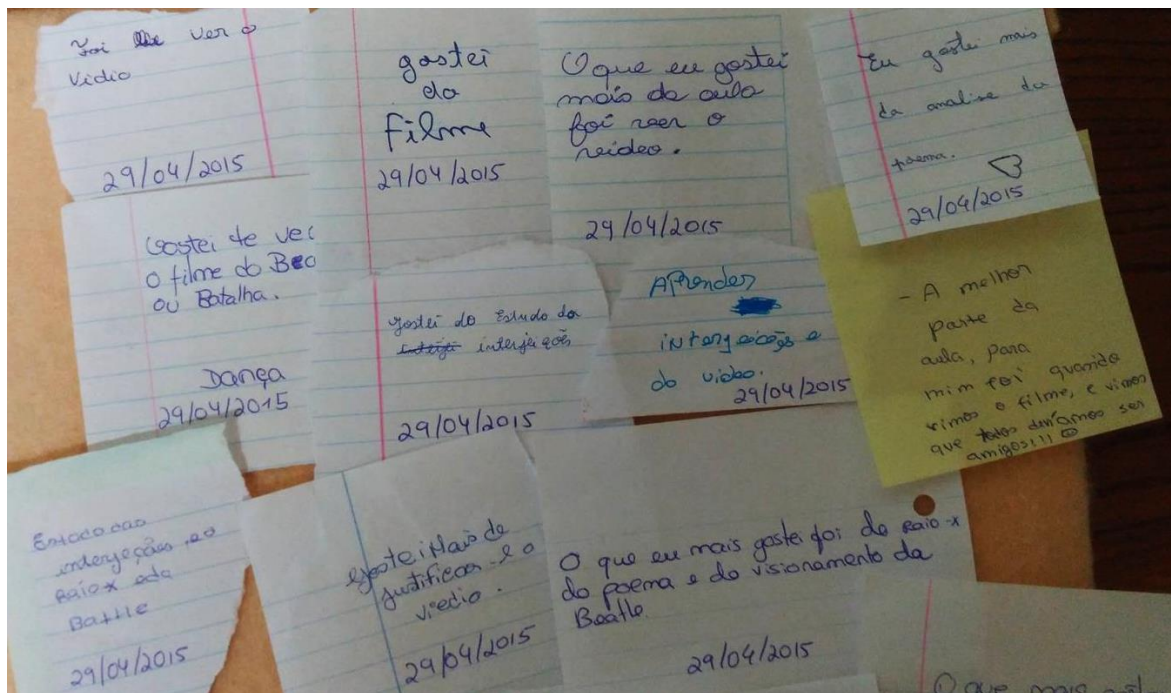 Foi ver o
vidio
29/04/2015
gostei
do
filme
29/04/2015
O que eu gostei
mais da aula
foi veer o
veideo.
29/04/2015
Eu gostei mais
da analise da
poema.
29/04/2015
Gostei de ver
o filme do Beco
ou Batalha.
Dança
29/04/2015
gostei do Estudo da
interjeições
29/04/2015
APrender
interjeições e
do video.
29/04/2015
- A melhor
parte da
aula, para
mim foi quando
vimos o filme, e vimos
que todos devíamos ser
amigos!!!
interjeções, eo
Raio-x eda
Battle
29/04/2015
gostei Mais de
justificar e o
viedio.
29/04/2015
O que eu mais gostei foi do Raio-x
do poema e do visionamento da
Beatle.
29/04/2015
O que mais